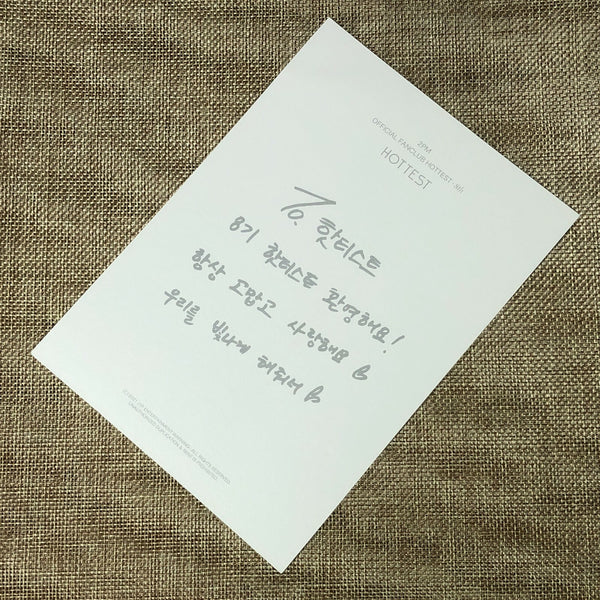 2PM
OFFICIAL FANCLUB HOTTEST -8th
HOTTEST
To. 핫티스트
8기 핫티스트 환영해요!
항상 고맙고 사랑해요
우리를 빛나게 해줘서
ENTERTAINMENT ALL RIGHTS RESERVED.
UNAUTHORIZED DUPLICATION & PROHIBITED.